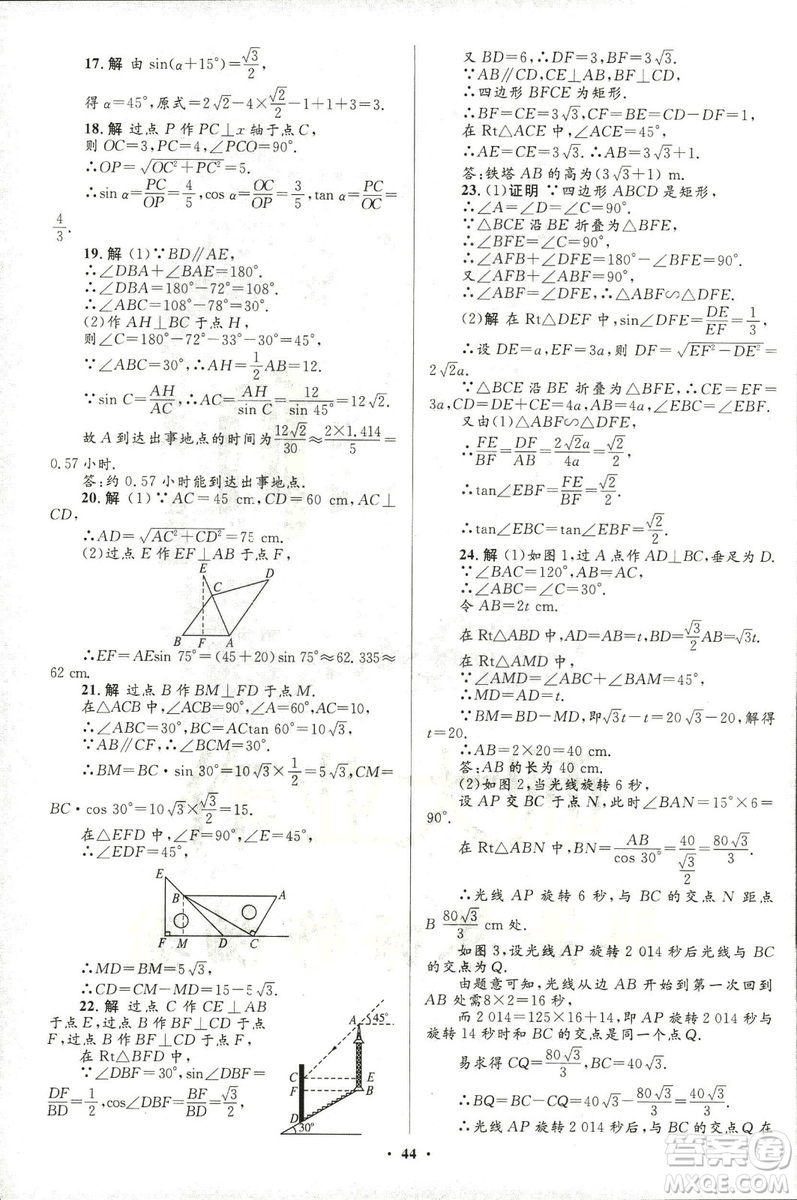 17. 解 由 sin(α+15°)=√3/2,
得 α=45°,原式=2√2-4×√2/2-1+1+3=3.
18. 解 过点 P 作 PC⊥x 轴于点 C,
则 OC=3,PC=4,∠PCO=90°.
∴OP=√(OC²+PC²)=5.
∴sin α=PC/OP=4/5,cos α=OC/OP=3/5,tan α=PC/OC=
4/3.
19. 解 (1)∵BD∥AE,
∴∠DBA+∠BAE=180°.
∴∠DBA=180°-72°=108°.
∴∠ABC=108°-78°=30°.
(2)作 AH⊥BC 于点 H,
则∠C=180°-72°-33°-30°=45°.
∵∠ABC=30°,∴AH=1/2AB=12.
∵sin C=AH/AC,∴AC=AH/sin C=12/sin 45°=12√2.
故 A 到达出事地点的时间为12√2/30≈2×1.414/5≈
0.57 小时.
答:约 0.57 小时能到达出事地点.
20. 解 (1)∵AC=45 cm,CD=60 cm,AC⊥
CD,
∴AD=√(AC²+CD²)=75 cm.
(2)过点 E 作 EF⊥AB 于点 F,
E
D
C
B F A
∴EF=AEsin 75°=(45+20)sin 75°≈62.335≈
62 cm.
21. 解 过点 B 作 BM⊥FD 于点 M.
在△ACB 中,∠ACB=90°,∠A=60°,AC=10,
∴∠ABC=30°,BC=ACtan 60°=10√3.
∵AB∥CF,∴∠BCM=30°.
∴BM=BC·sin 30°=10√3×1/2=5√3,CM=
BC·cos 30°=10√3×√3/2=15.
在△EFD 中,∠F=90°,∠E=45°,
∴∠EDF=45°,
E
B A
F M D C
∴MD=BM=5√3,
∴CD=CM-MD=15-5√3.
22. 解 过点 C 作 CE⊥AB
于点 E,过点 B 作 BF⊥CD 于点
F.
在 Rt△BFD 中,
∵∠DBF=30°,sin∠DBF=
DF/BD=1/2,cos∠DBF=BF/BD=√3/2,
A 45°
C E
F B
D
30°
又 BD=6,∴DF=3,BF=3√3.
∵AB∥CD,CE⊥AB,BF⊥CD,
∴四边形 BFCE 为矩形.
∴BF=CE=3√3,CF=BE=CD-DF=1,
在 Rt△ACE 中,∠ACE=45°,
∴AE=CE=3√3,∴AB=3√3+1.
答:铁塔 AB 的高为(3√3+1) m.
23. (1)证明 ∵四边形 ABCD 是矩形,
∴∠A=∠D=∠C=90°.
∵△BCE 沿 BE 折叠为△BFE,
∴∠BFE=∠C=90°.
∴∠AFB+∠DFE=180°-∠BFE=90°.
∵∠AFB+∠ABF=90°,
∴∠ABF=∠DFE,∴△ABF∽△DFE.
(2)解 在 Rt△DEF 中,sin∠DFE=DE/EF=1/3,
∴设 DE=a,EF=3a,则 DF=√(EF²-DE²)=
2√2a.
∵△BCE 沿 BE 折叠为△BFE,∴CE=EF=
3a,CD=DE+CE=4a,AB=4a,∠EBC=∠EBF.
又由(1)△ABF∽△DFE,
∴FE/BF=DF/AB=2√2a/4a=√2/2,
∴tan∠EBF=FE/BF=√2/2,
∴tan∠EBC=tan∠EBF=√2/2.
24. 解 (1)如图 1,过 A 点作 AD⊥BC,垂足为 D.
∵∠BAC=120°,AB=AC,
∴∠ABC=∠C=30°.
令 AB=2t cm.
在 Rt△ABD 中,AD=1/2AB=t,BD=√3/2AB=√3t.
在 Rt△AMD 中,
∵∠AMD=∠ABC+∠BAM=45°,
∴MD=AD=t.
∵BM=BD-MD,即√3t-t=20√3-20,解得
t=20.
∴AB=2×20=40 cm.
答:AB 的长为 40 cm.
(2)如图 2,当光线旋转 6 秒,
设 AP 交 BC 于点 N,此时∠BAN=15°×6=
90°.
在 Rt△ABN 中,BN=AB/cos 30°=40/(√3/2)=80√3/3.
∴光线 AP 旋转 6 秒,与 BC 的交点 N 距点
B 80√3/3 cm 处.
如图 3,设光线 AP 旋转 2 014 秒后光线与 BC
的交点为 Q.
由题意可知,光线从边 AB 开始到第一次回到
AB 处需8×2=16 秒,
而 2014=125×16+14,即 AP 旋转 2 014 秒与
旋转 14 秒时和 BC 的交点是同一个点 Q.
易求得 CQ=80√3/3,BC=40√3.
∴BQ=BC-CQ=40√3-80√3/3=40√3/3.
∴光线 AP 旋转 2 014 秒后,与 BC 的交点 Q 在
· 44 ·
答案圈
MXQE.COM